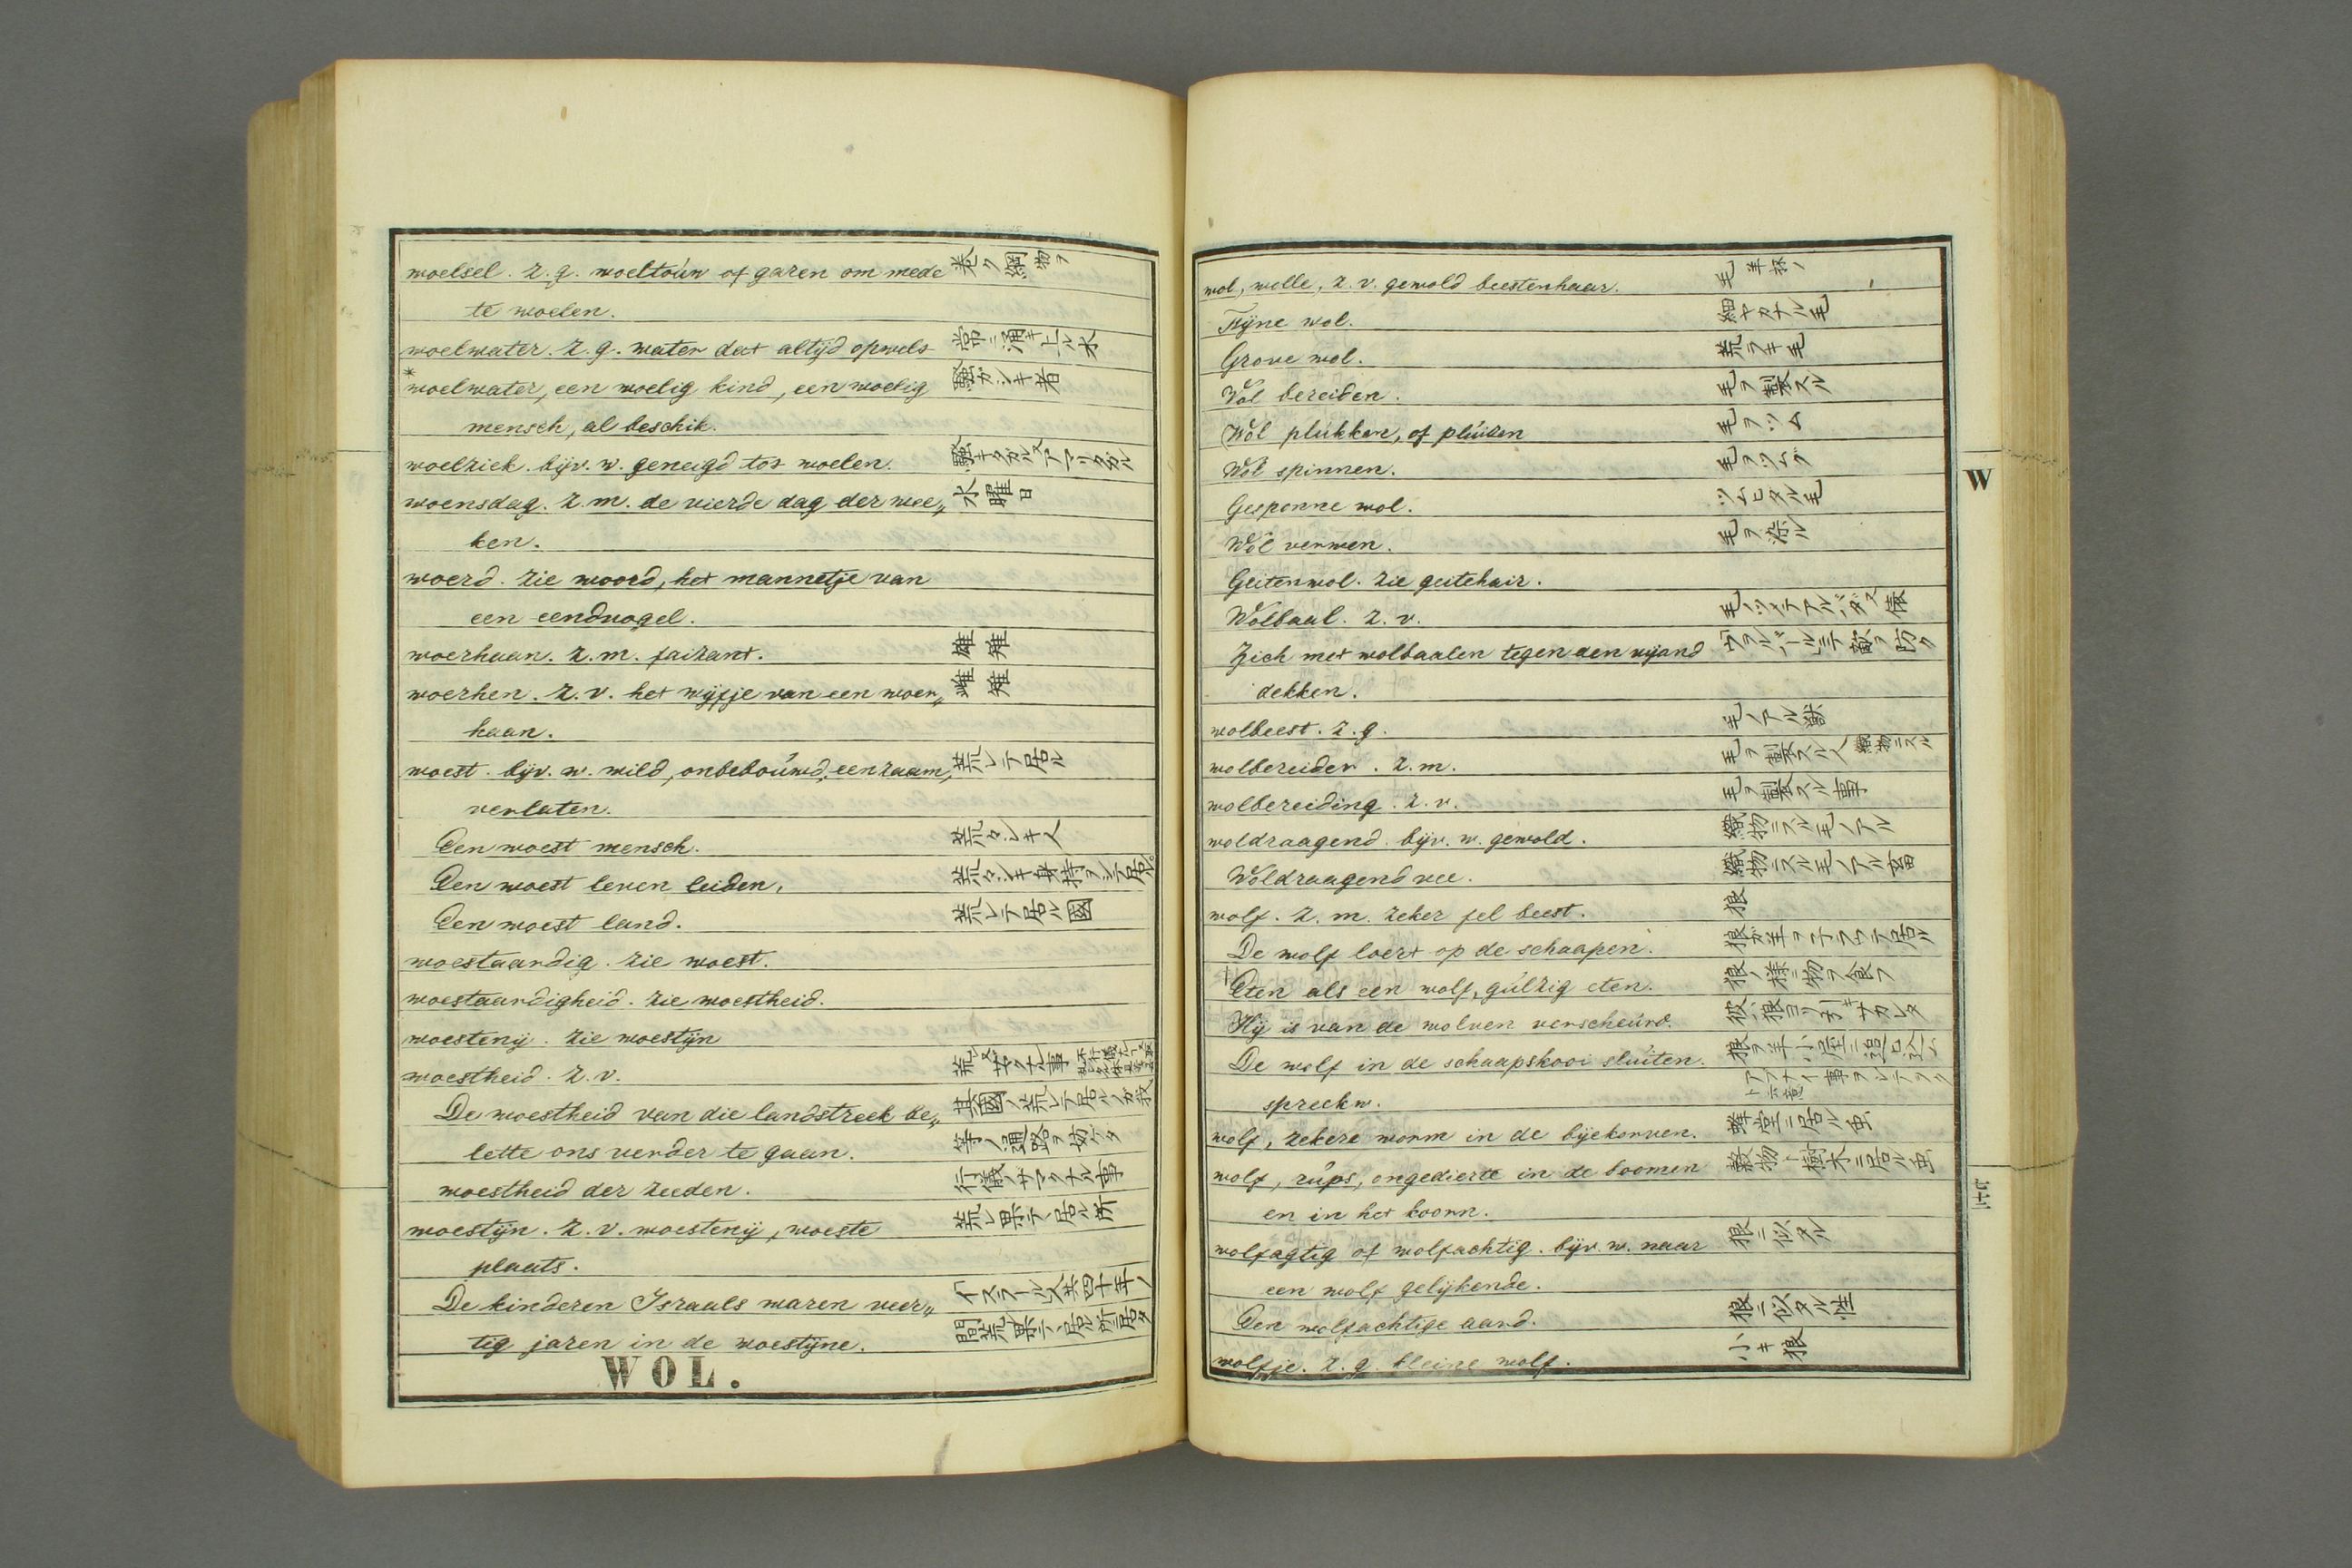 woelsel. z. g. woeltoúw of garen om mede 物ヲ巻ク綱
te woelen.
woelwater. z. g. water dat altijd opwels 常ニ涌キ上ル水
*woelwater, een woelig kind, een woelig 騒ガシキ者
mensch, al beschik.
woelziek. bijv. w. geneigd tos woelen.
woensdag. z. m. de vierde dag der wee„ 水曜日
ken.
woerd. zie woord, het mannetje van
een eendvogel.
woerhaan. z. m. faizant. 雄雉
woerhen. z. v. het wijfje van een woer„ 雌雉
haan.
woest. bijv. w. wild, onbeboúwd, eenzaam, 荒レテ居ル
verlaten.
Een woest mensch. 荒ラシキ人
Een woest leven leiden. 荒ラシキ身持ヲシテ居ル
Een woest land. 荒レテ居ル國
woestaardig. zie woest.
woestaardigheid. zie woestheid.
woestenij. zie woestijn
woestheid. z. v.
De woestheid van die landstreek be„ 其國ノ荒レテ居ルガ我
lette ons verder te gaan. 等ノ通路ヲ妨ケタ
woestheid der zeeden. 行儀ノサマタナル事
woestijn. z. v. woestenij, woeste 荒レ果テヽ居ル所
plaats.
De kinderen Israals waren veer„ イスラール人共四十年ノ
tig jaren in de woestijne. 間荒果テヽ居ル所ニ居タ
WOL.
wol, wolle, z. v. gewold beestenhaar. 羊抔ノ毛
Fijne wol. 細ヤカナル毛
Grove wol. 荒ラキ毛
Wol bereiden. 毛ヲ製スル
Wol plúkken, of plúizen 毛ヲツム
Wol spinnen. 毛ヲツムグ
Gesponne wol. ツムヒタル毛
Wol verwen. 毛ヲ染ル
Geitenwol. zie geitehair.
Wolbaal. z. v.
Zich met wolbaalen tegen den vijand ヴヲルバールニテ敵ヲ防ク
dekken.
wolbeest. z. g. 毛ノアル獣
wolbereider. z. m. 織物ニスル毛ヲ製スル人
wolbereiding. z. v. 毛ヲ製スル事
woldraagend. bijv. w. gewold. 織物ニスル毛ノアル
Woldraagend vee. 織物ニスル毛ノアル畜
wolf. z. m. zeker fel beest. 狼
De wolf loert op de schaapen. 狼ガ羊ヲ子ラフテ居ル
Eten als een wolf, gúlzig eten. 狼ノ様ニ物ヲ食フ
Hij is van de wolven verscheúrd. 彼ハ狼ヨリ引サカレタ
De wolf in de schaapskooi slúiten. 狼ヲ羊小屋ニ追口込ム
spreekw. アブナイ事ヲシテヲクト云意
wolf, zekere worm in de bijekorven. 蜂堂ニ居ル虫
wolf, rúps, ongedierte in de boomen 穀物ト樹木ニ居ル虫
en in het koorn.
wolfagtig of wolfachtig. bijv. w. naar 狼ニ似タル
een wolf gelijkende.
Een wolfachtige aard. 狼ニ似タル性
wolfje. z. g. kleine wolf. 小キ狼
W